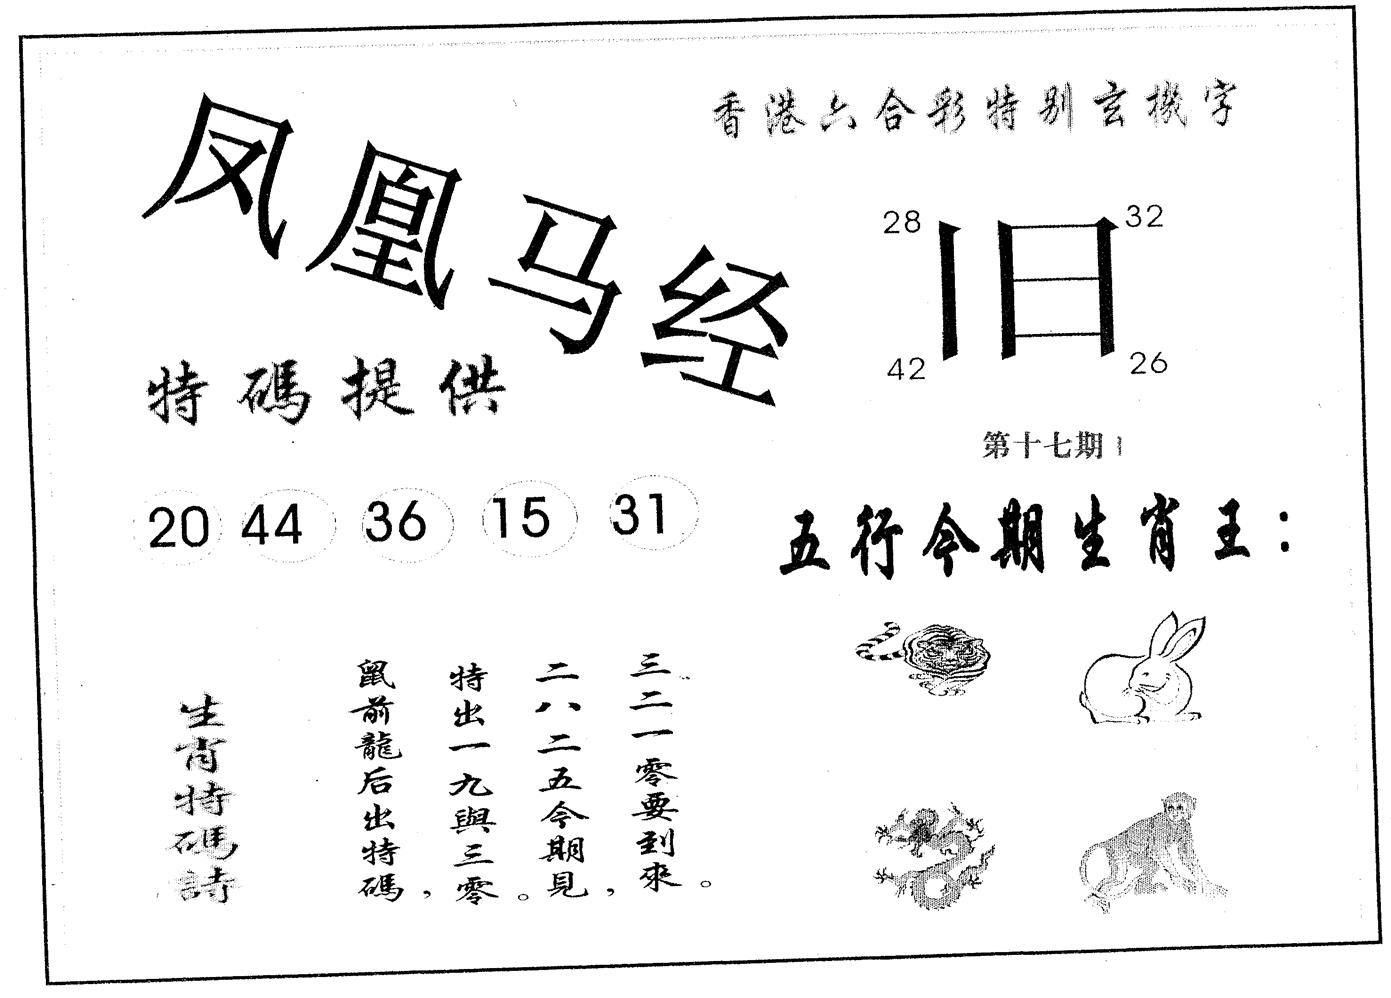 凤凰马经
香港六合彩特别玄機字
28 32
旧
42 26
特碼提供
第十七期
20 44 36 15 31
五行今期生肖王：
生肖特碼詩
鼠前龍后出特碼，
特出一九與三零。
二八二五今期見，
三二一零要到來。